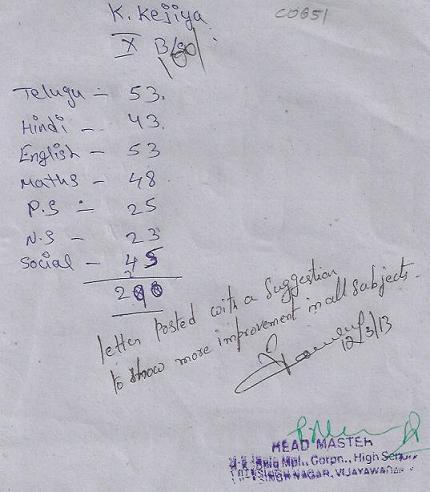 K. Kejiya
C0651
X B/
Telugu – 53.
Hindi – 43.
English – 53
Maths – 48
P.S – 25
N.S – 23
Social – 45
letter posted with a Suggestion
to show more improvement in all subjects.
12/3/13
HEAD MASTER
Mpl., Corpn., High
NAGAR, VIJAYAWADA